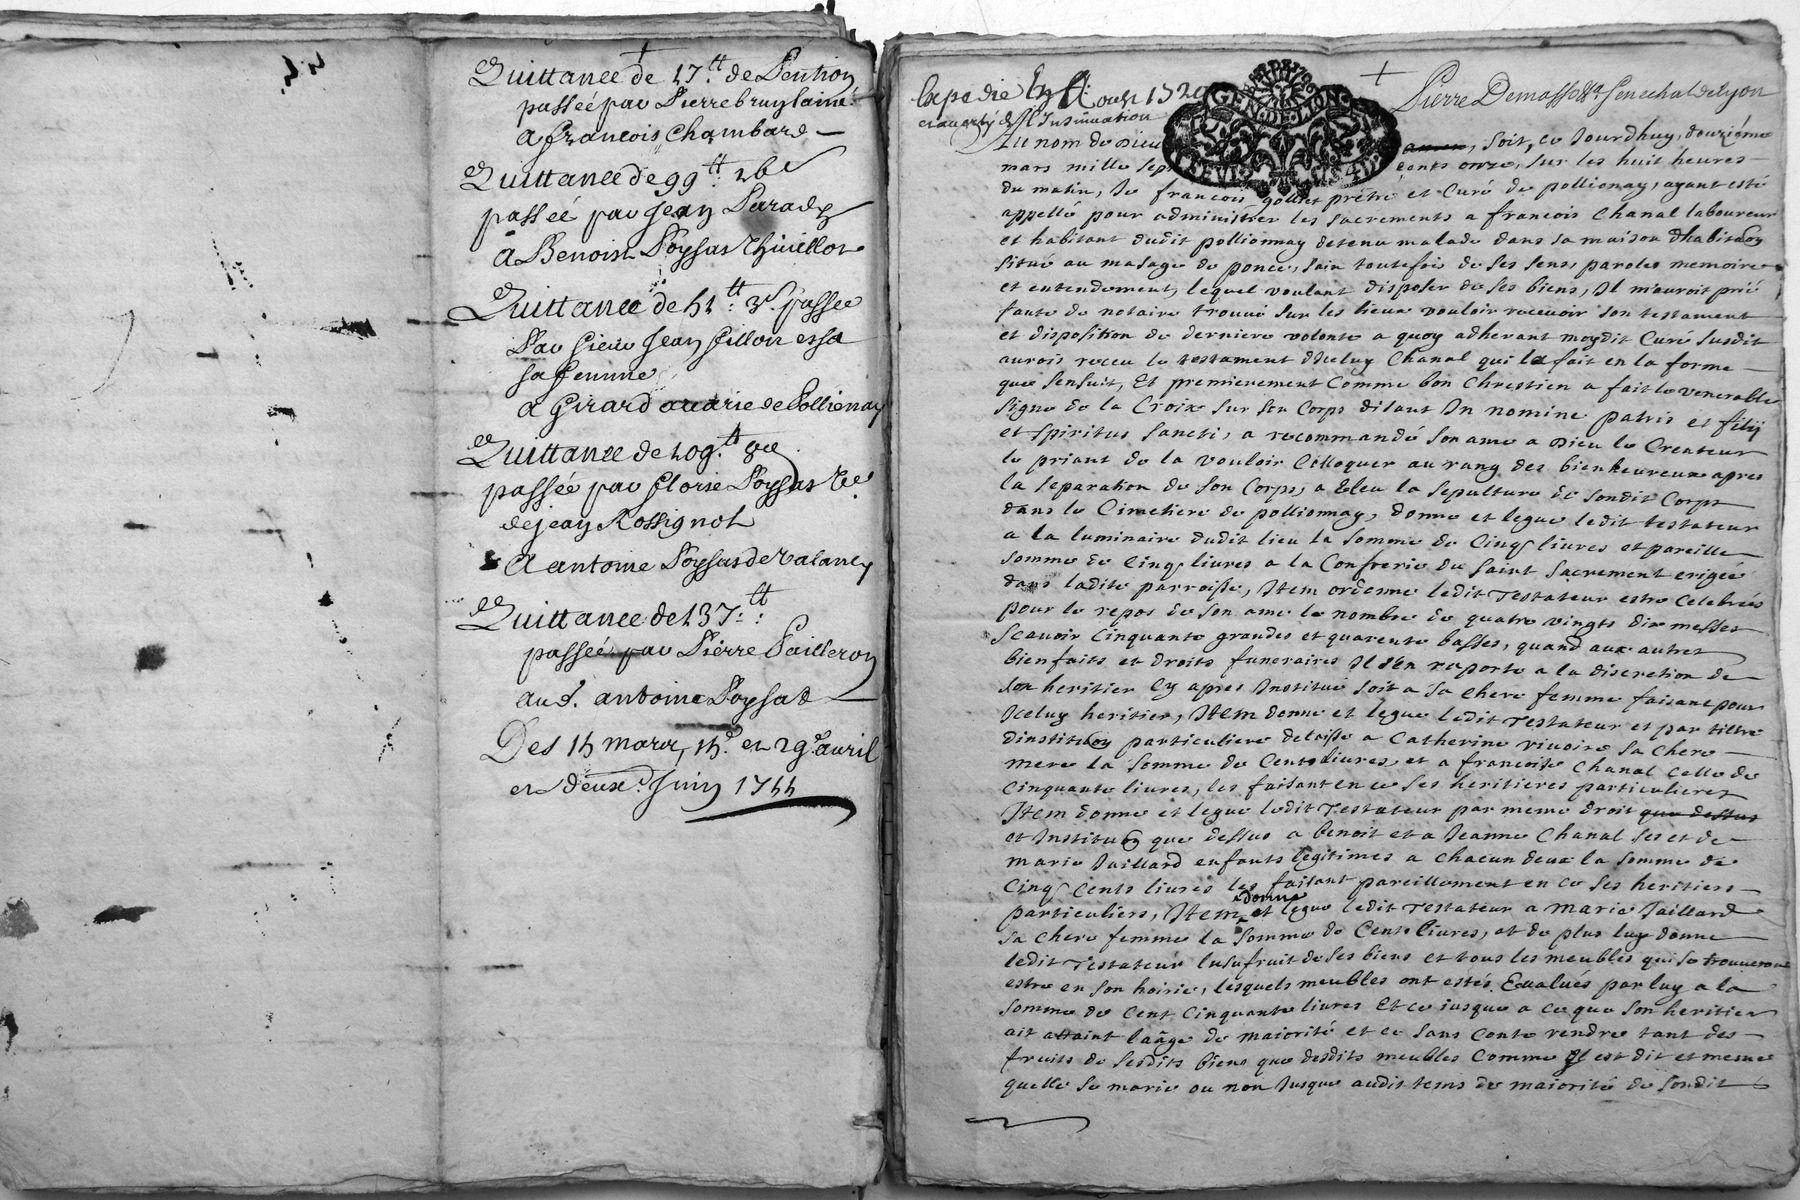 Quittance de 17.tt de Pention
passée par Pierre bruylaimé
a françois Chambard
Quittance de 99tt
passée par Jean
à Benoist Poysat Thivillor
Quittance de 51tt 3s passée
Par Sieur Jean
sa femme
a Girard de Pollienay
Quittance de 109.tt
passée par florie Poysat Ve
de jean Rossignol
a antoine Poysat de Valancy
Quittance de 137tt:
passée par Pierre Pailleron
aud. antoine Poysat
Des 15 mars, 15e et 29e avril
et deuxe. Juin 1744
Expedié
de l'Insinuation
GEN DE LYON
Pierre Demasso Senechal de lyon
Au nom de Dieu amen, soit, ce Jourdhuy, douzième
mars mille sept cents onze, sur les huit heures
du matin, Je françois goullet prêtre et Curé de pollionay, ayant esté
appellé pour administrer les sacrements a francois Chanal laboureur
et habitant dudit pollionnay detenu malade dans sa maison dhabitaon
situé au masage de ponce, sain toutefois de ses sens, paroles memoire
et entendement, lequel voulant disposer de ses biens, Il m'auroit prié
faute de notaire trouué sur les lieux vouloir recevoir son testament
et disposition de derniere volonte a quoy adherant moydit Curé susdit
aurois receu le testament diceluy Chanal qui la fait en la forme
que sensuit, Et premierement Comme bon Chrestien a fait le venerable
signe de la Croix sur son Corps disant In nomine patris et filij
et spiritus sancti, a recommandé son ame a Dieu le Createur
le priant de la vouloir Colloquer au rang des bienheureux apres
la separation de son Corps, a Eleu la sepulture de sondit Corps
dans le Cimetiere de pollionnay, donne et legue ledit testateur
a la luminaire dudit lieu la somme de Cinq livres et pareille
somme de Cinq livres a la Confrerie du saint sacrement erigée
dans ladite parroisse, Item ordonne ledit Testateur estre Celebrés
pour le repos de son ame le nombre de quatre vingts dix messes
scavoir Cinquante grandes et quarente basses, quand aux autres
bienfaits et droits funeraires Il s'en raporte a la discretion de
son heritier cy apres Institué soit a sa chere femme faisant pour
Iceluy heritier, Item donne et legue ledit Testateur et par tiltre
dinstituon particuliere delaisse a Catherine rivoire sa chere
mere la somme de Cents livres, et a francoise Chanal celle de
Cinquante livres, les faisant en ce ses heritieres particulieres
Item donne et legue ledit Testateur par meme droit que dessus
et Instituon que dessus a benoit et a Jeanne Chanal ses et de
marie Jaillard enfants legitimes a chacun deux la somme de
Cinq Cents livres les faisant pareillement en ce ses heritiers
particuliers, Item donne et legue ledit Testateur a marie Jaillard
sa chere femme la somme de Cents livres, et de plus luy donne
ledit Testateur lusufruit de ses biens et tous les meubles qui se trouveront
estre en son hoirie, lesquels meubles ont estés Evalués par luy a la
somme de Cent Cinquante livres Et ce jusque a ce que son heritier
ait attaint laâge de majorité et ce sans conte rendre tant des
fruits de sesdits biens que desdits meubles Comme Il est dit et mesme
quelle se marie ou non Jusque audit tems de majorité de sondit